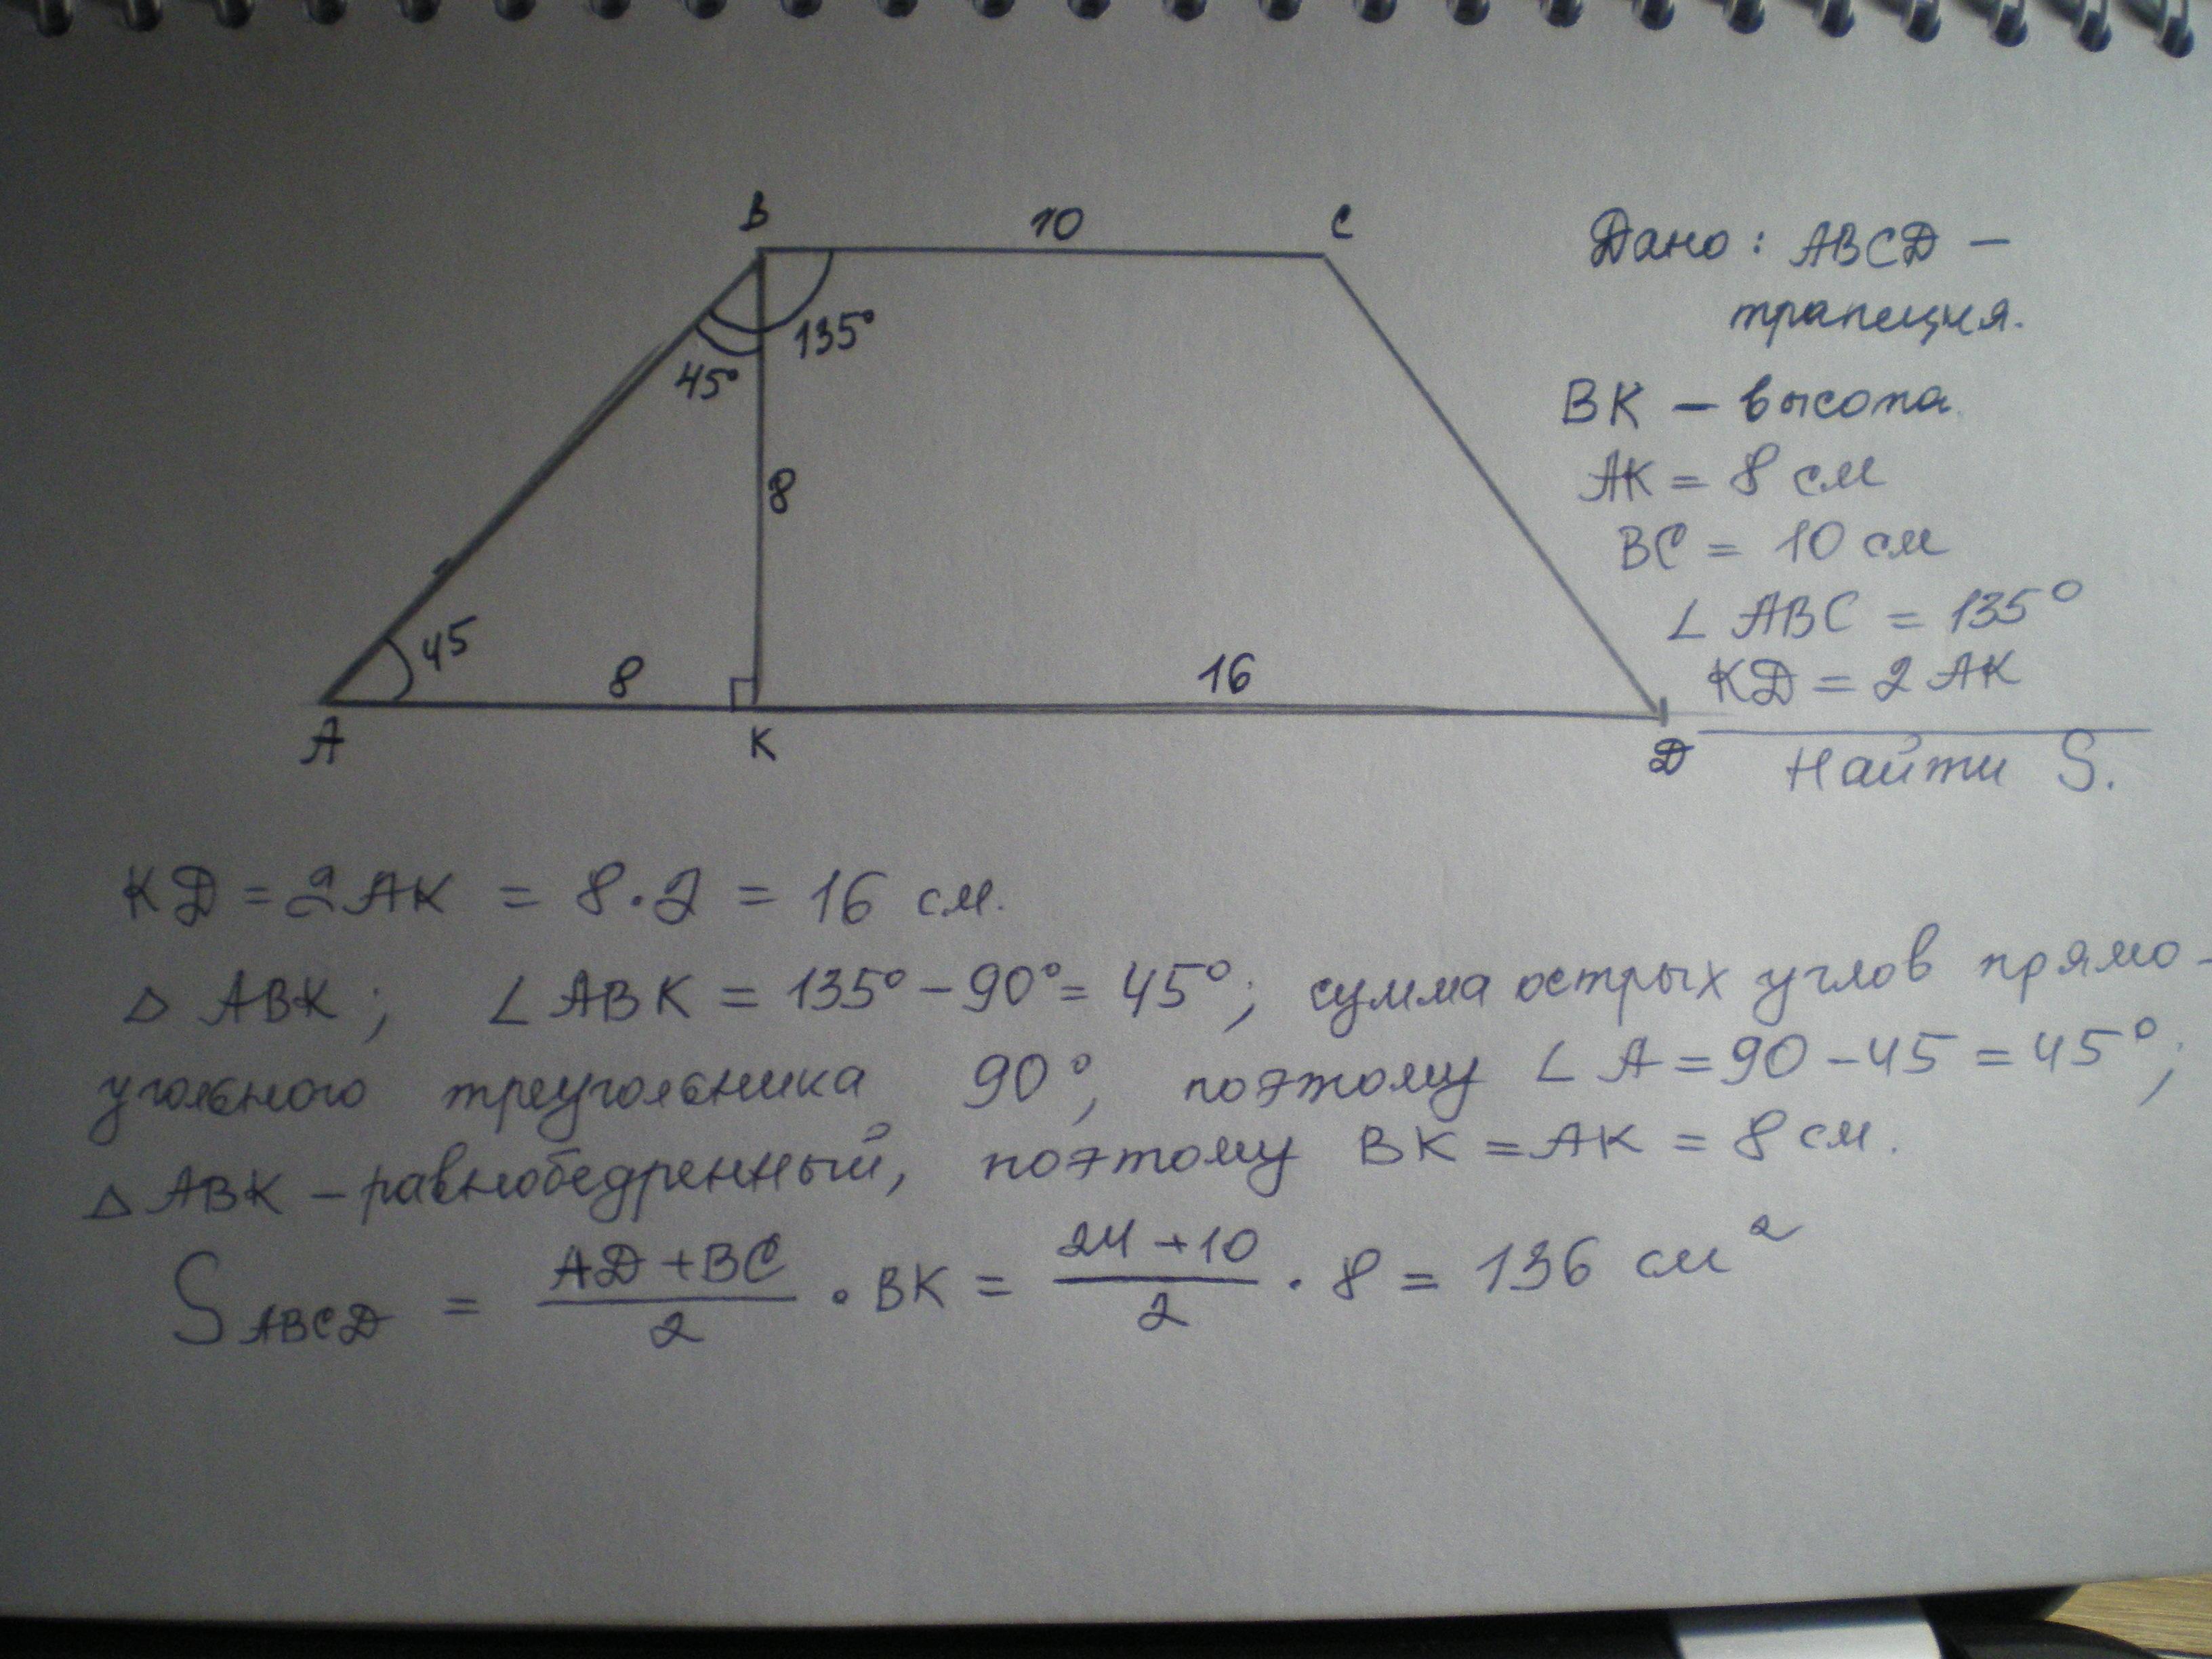 B 10 C
135°
45°
8
45
8 16
A K D
Дано: ABCD —
трапеция.
BK — высота
AK = 8 см
BC = 10 см
∠ ABC = 135°
KD = 2 AK
Найти S.
KD = 2AK = 8 · 2 = 16 см.
△ ABK; ∠ ABK = 135° − 90° = 45°; сумма острых углов прямо-
угольного треугольника 90°, поэтому ∠ A = 90 − 45 = 45°;
△ ABK — равнобедренный, поэтому BK = AK = 8 см.
S ABCD = (AD + BC)/2 · BK = (24 + 10)/2 · 8 = 136 см²